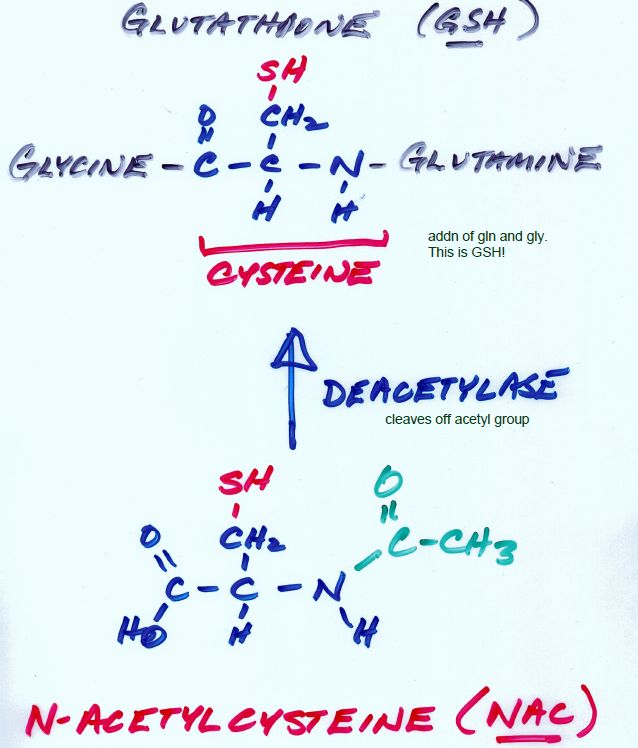 GLUTATHIONE (GSH)
SH
O CH2
GLYCINE - C - C - N - GLUTAMINE
H H
CYSTEINE
addn of gln and gly.
This is GSH!
DEACETYLASE
cleaves off acetyl group
SH
O
O CH2 C-CH3
C - C - N
HO H H
N-ACETYLCYSTEINE (NAC)